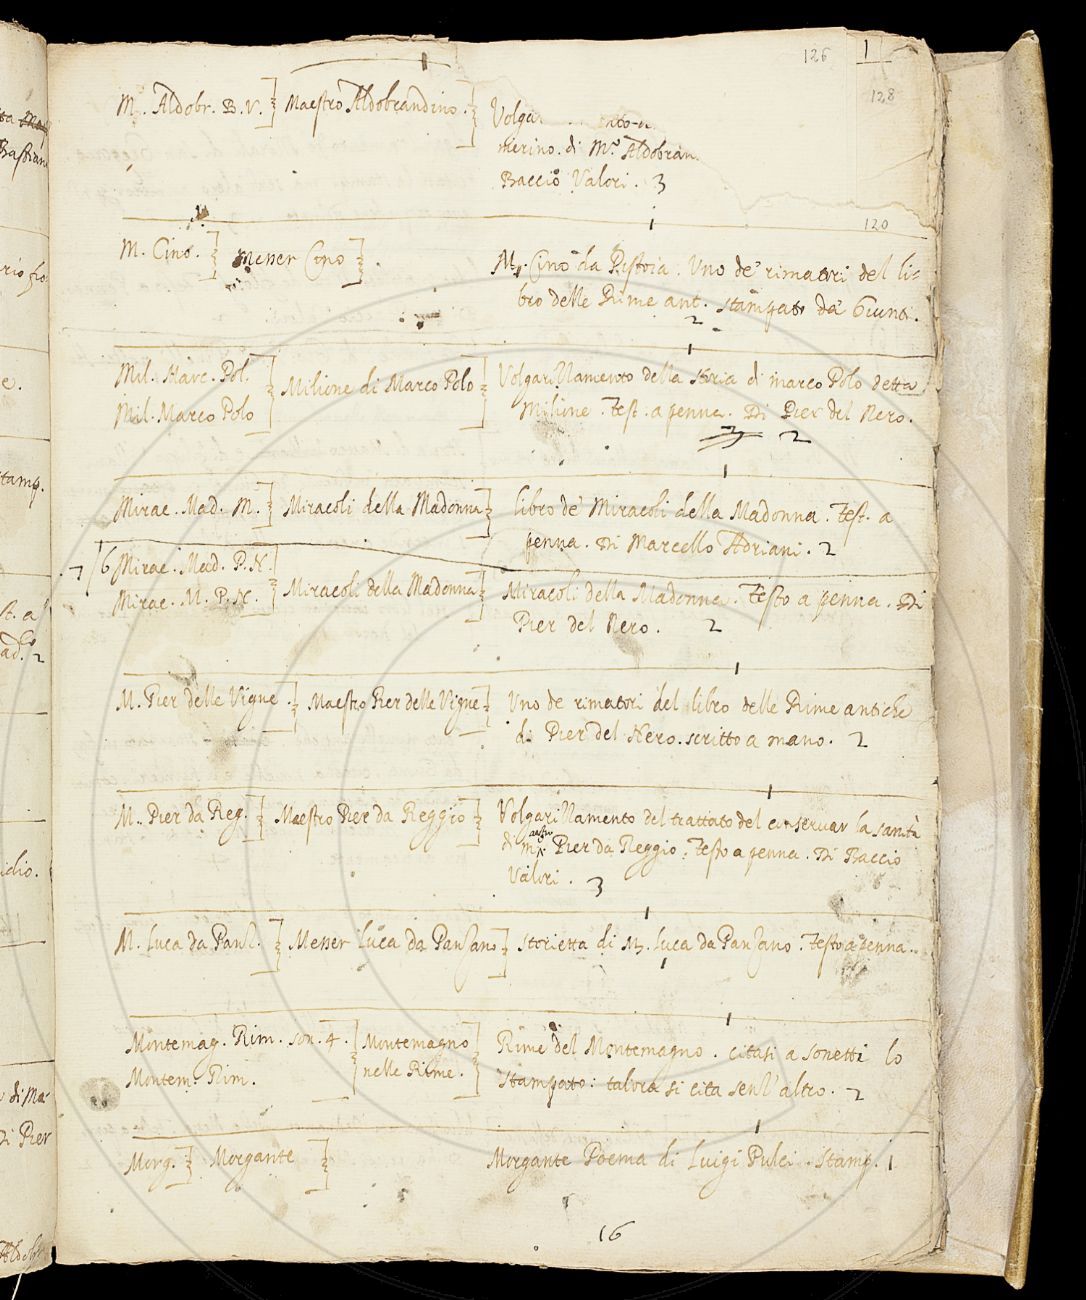 126
1
128
M. Aldobr. B. V. ] Maestro Aldobrandino. ] Volgar
merino. di M.º Aldobran
Baccio Valori. 3
120
M. Cino. ] Messer Cino ] M. Cino da Pistoia. Uno de' rimatori del li-
bro delle Rime ant. stampato da' Giunti.
2
Mil. Marc. Pol. ] Milione di Marco Polo ] Volgarizzamento della storia di Marco Polo detta
Mil. Marco Polo
Milione. Test. a penna. Di Pier del Nero.
2
Mirac. Mad. M. ] Miracoli della Madonna ] libro de' Miracoli della Madonna. Test. a
penna. Di Marcello Adriani. 2
6 Mirac. Mad. P. N.
Mirac. M. P. N. ] Miracoli della Madonna ] Miracoli della Madonna. Testo a penna. Di
Pier del Nero. 2
M. Pier delle Vigne. ] Maestro Pier delle Vigne ] Uno de rimatori del libro delle Rime antiche
di Pier del Nero. scritto a mano. 2
M. Pier da Reg. ] Maestro Pier da Reggio ] Volgarizzamento del trattato del conservar la sanità
di M. Pier da Reggio. Testo a penna. Di Baccio
Valori. 3
M. Luca da Panz. ] Messer Luca da Panzano ] storietta di M. Luca da Panzano. Testo a penna.
1
Montemag. Rim. son. 4. ] Montemagno ] Rime del Montemagno. citasi a sonetti lo
Montem. Rim.
nelle Rime.
stampato: talora si cita senz'altro. 2
Morg. ] Morgante ] Morgante Poema di Luigi Pulci. Stamp. 1
16